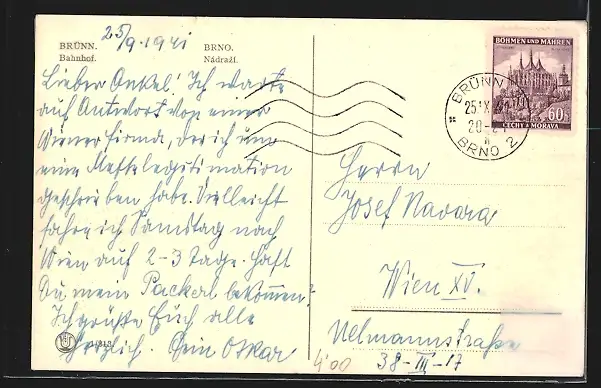 25/9. 1941
BRÜNN. BRNO.
Bahnhof. Nádraží.
Lieber Onkel! Ich warte
auf Antwort von einer
Wiener Firma, der ich um
eine Messelegitimation
geschrieben habe. Vielleicht
fahre ich Samstag nach
Wien auf 2-3 Tage. Hast
Du mein Packerl bekommen?
Ich grüße Euch alle
herzlich. Dein Oskar
BÖHMEN UND MÄHREN
60
ČECHY A MORAVA
BRÜNN 2
25.IX.41
20
BRNO 2
Herrn
Josef Navara
Wien XV.
38-III-17
4'00